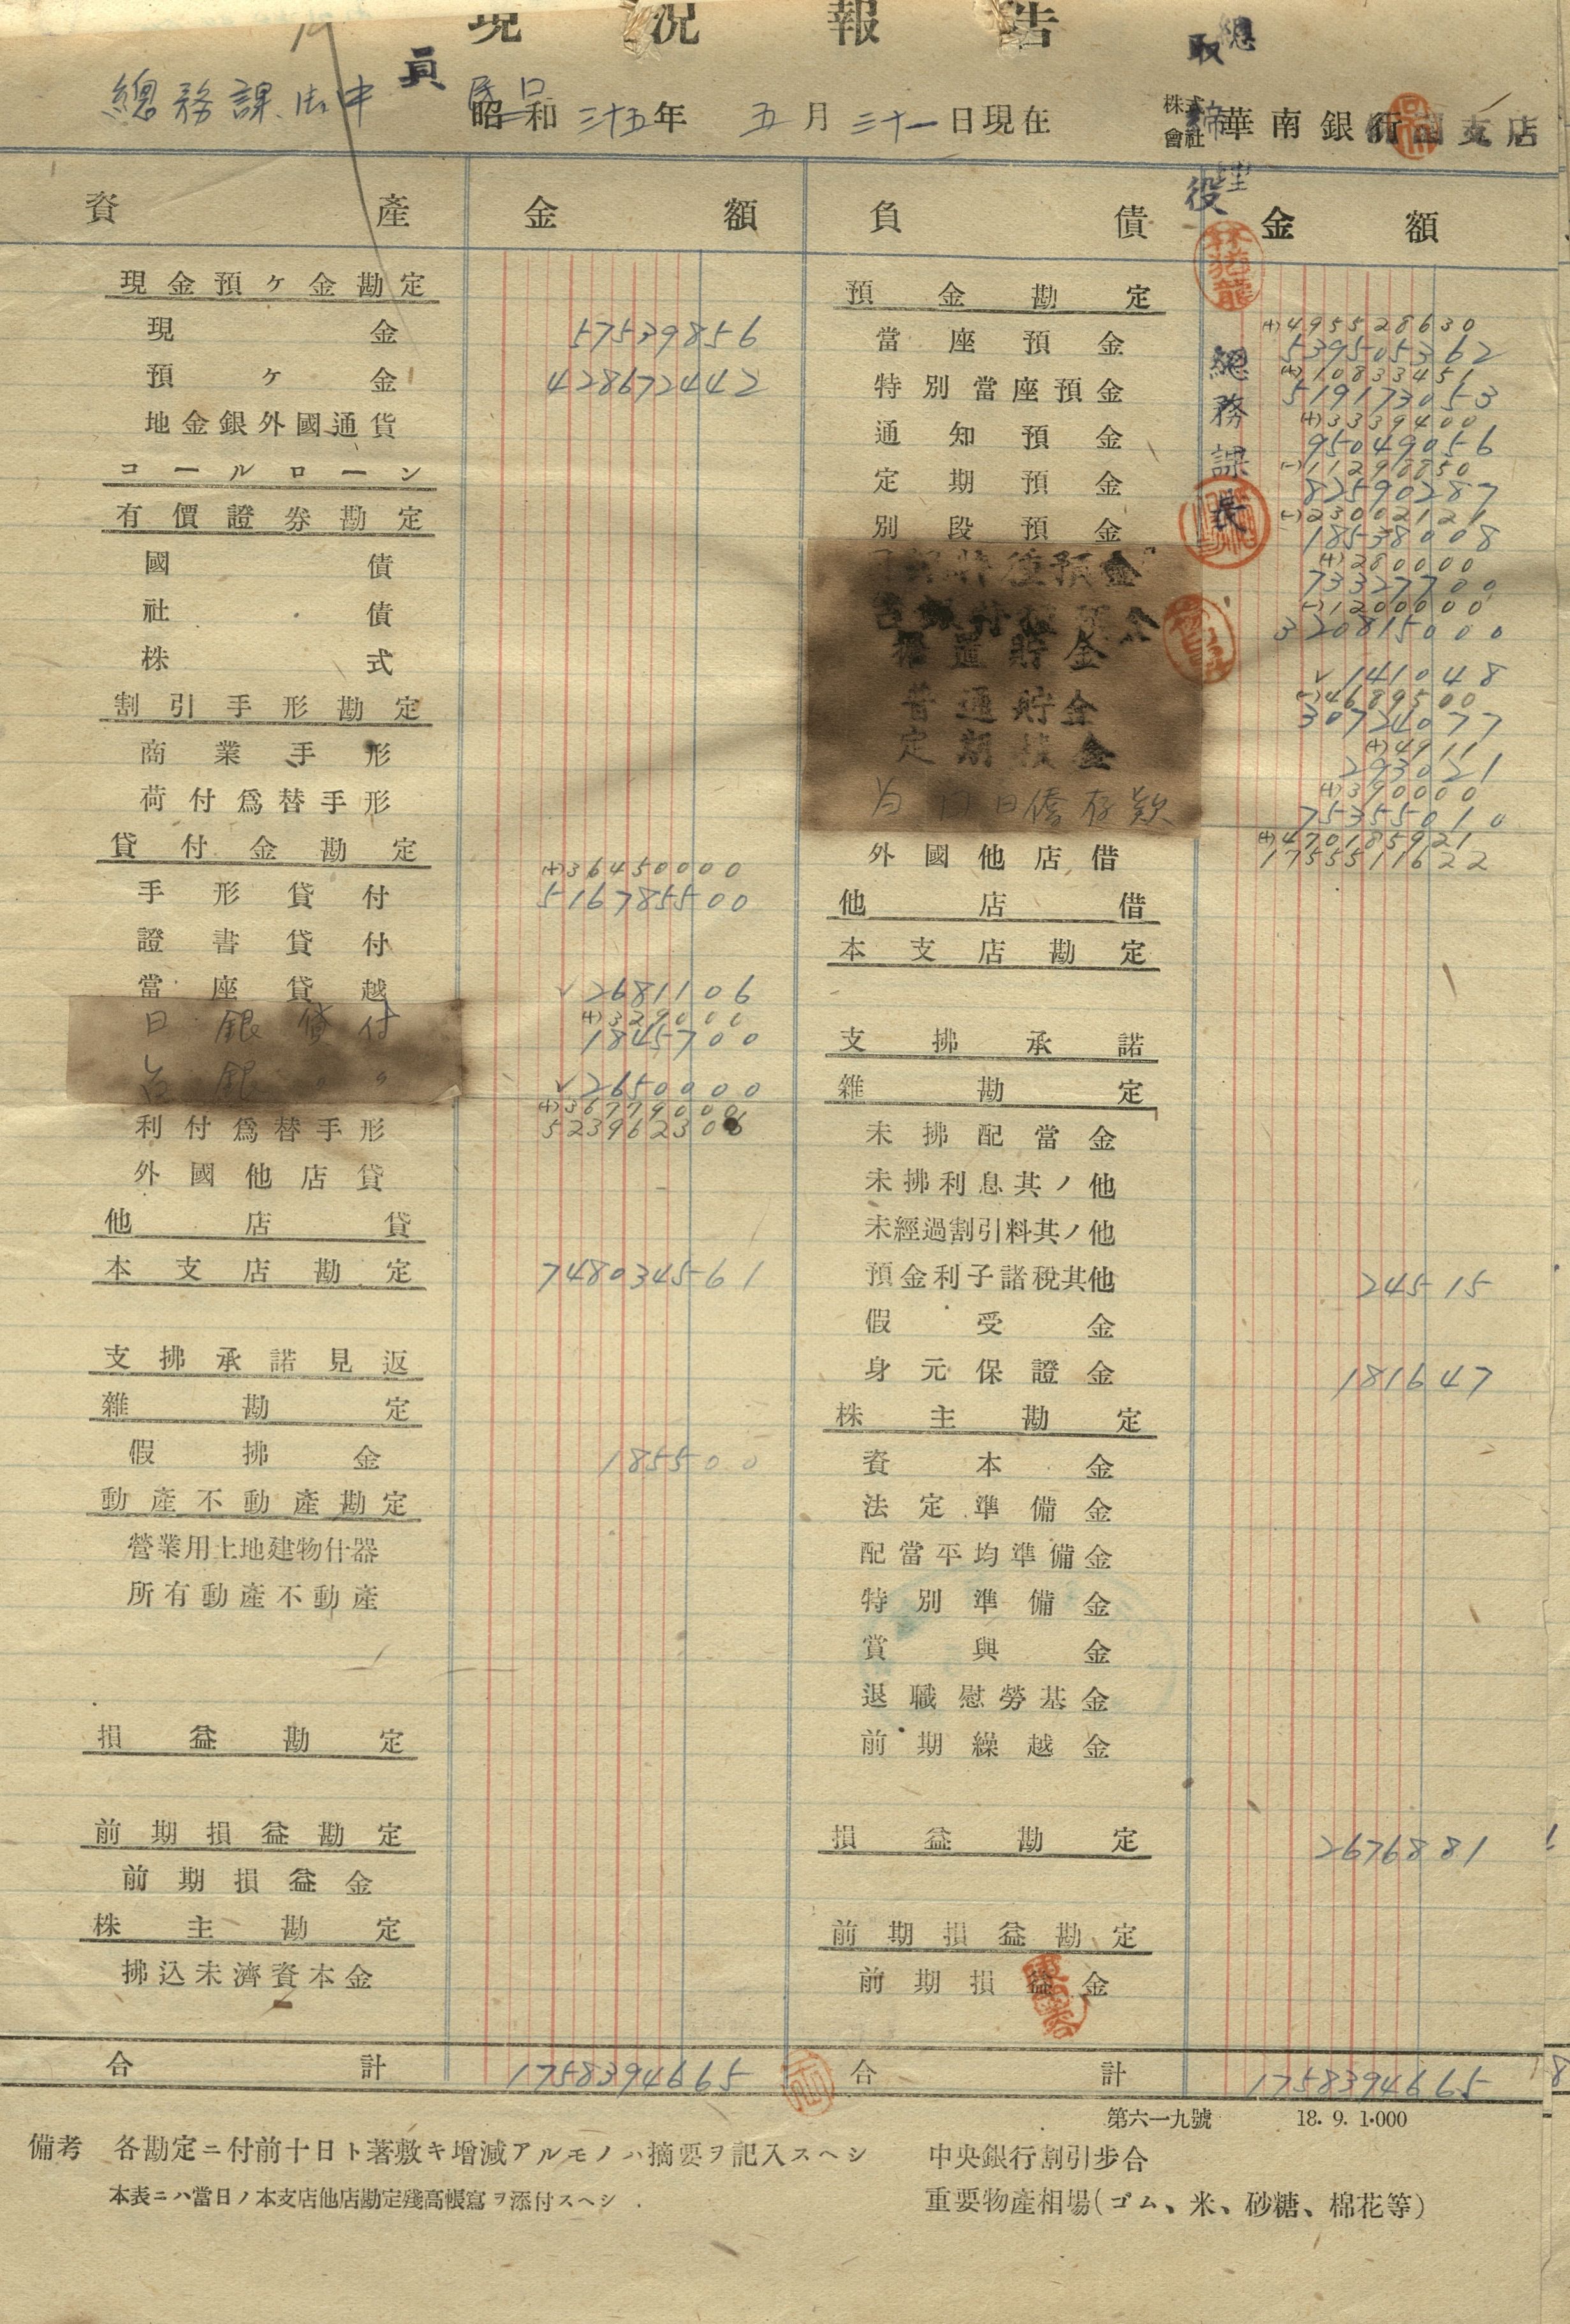 現況報告
總務課 御中
昭和 三十五年 五月 三十一日現在
株式會社 華南銀行 支店
資產 金額 負債 金額
現金預ケ金勘定
現金 57539856
預ケ金 428672442
地金銀外國通貨
コールローン
有價證券勘定
國債
社債
株式
割引手形勘定
商業手形
荷付爲替手形
貸付金勘定
(+)36450000
手形貸付 516785500
證書貸付
當座貸越 ✓2681106
(+)329000
日銀貸付 1845700
台銀〃 ✓2650000
(+)36779000
利付爲替手形 523962306
外國他店貸
他店貸
本支店勘定 748034561
支拂承諾見返
雜勘定
假拂金 185500
動產不動產勘定
營業用土地建物什器
所有動產不動產
損益勘定
前期損益勘定
前期損益金
株主勘定
拂込未濟資本金
合計 1758394665
預金勘定
(+)495528630
當座預金 539505362
(+)10833451
特別當座預金 519173053
(+)3339400
通知預金 95049056
(-)11290850
定期預金 82590287
(-)23002121
別段預金 18538008
(+)280000
特種預金 73327700
(-)1200000
320815000
貯金 ✓141048
(-)4689500
普通貯金 30724077
(+)4911
定期積金 293021
(+)390000
日僑存款 75355010
(+)470185921
外國他店借 1755511622
他店借
本支店勘定
支拂承諾
雜勘定
未拂配當金
未拂利息其ノ他
未經過割引料其ノ他
預金利子諸稅其他 24515
假受金
身元保證金 181647
株主勘定
資本金
法定準備金
配當平均準備金
特別準備金
賞與金
退職慰勞基金
前期繰越金
損益勘定 2676881
前期損益勘定
前期損益金
合計 1758394665
總務課長
第六一九號 18. 9. 1.000
備考 各勘定ニ付前十日ト著敷キ增減アルモノハ摘要ヲ記入スヘシ
本表ニハ當日ノ本支店他店勘定殘高帳寫ヲ添付スヘシ
中央銀行割引步合
重要物產相場(ゴム、米、砂糖、棉花等)